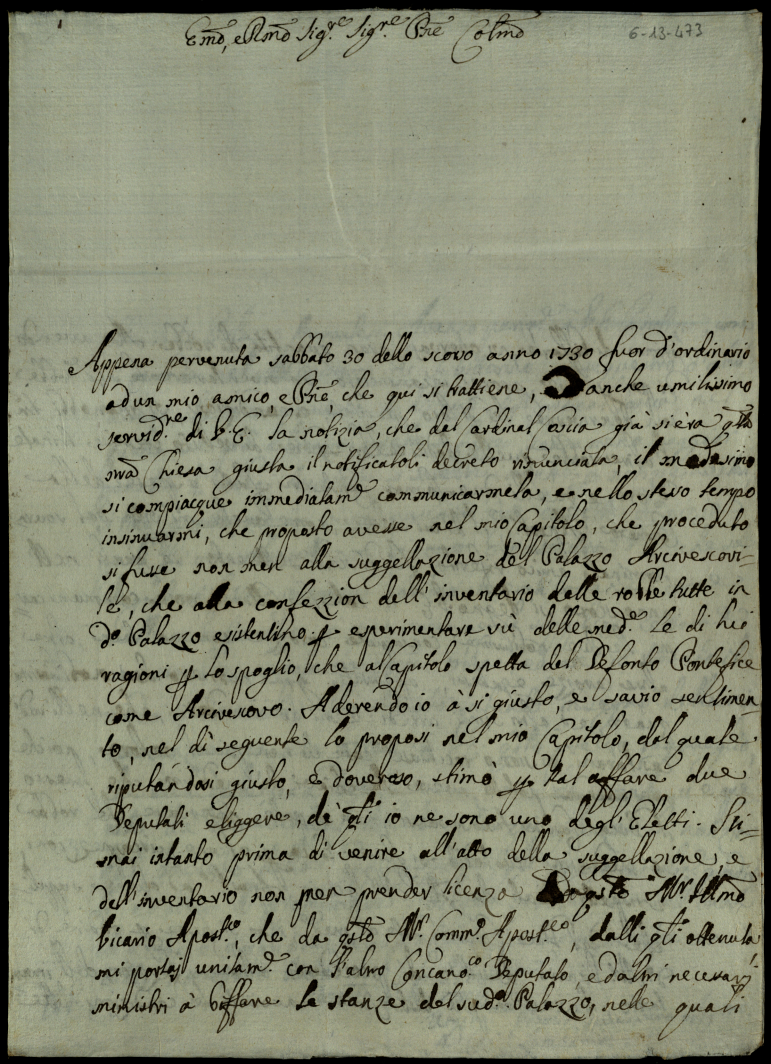 Emõ, e Rmõ Sig.re Sig.re Pñe Colmõ
6-13-473
Appena pervenuta sabbato 30 dello scorso anno 1730 fuor d'ordinario
ad un mio amico, e Pñe, che qui si trattiene, anche umilissimo
servid.re di V. E. la notizia, che dal Cardinal Coscia già si èra qsta
nrã Chiesa giusta il notificatoli decreto rinunciata, il medesimo
si compiacque immediatam.e communicarmela, e nello stesso tempo
insinuarmi, che proposto avesse nel mio Capitolo, che proceduto
si fusse non men alla suggellazione del Palazzo Arcivescovi-
le, che alla confezzion dell'inventario delle robbe tutte in
d.o Palazzo esistentino p esperimentare sù delle med.e le di lui
ragioni p lo spoglio, che al Capitolo spetta del Defonto Pontefice
come Arcivescovo. Aderendo io à si giusto, e savio sentimen-
to, nel dì seguente lo proposi nel mio Capitolo, dal quale
riputandosi giusto, e doveroso, stimò p tal affare due
Deputati eliggere, dè qli io ne sono uno degl'Eletti. Sti-
mai intanto prima di venire all'atto della suggellazione, e
dell'inventario non men prender licenza da qsto Mr. Illmõ
Vicario Apost.co, che da qsto Mr. Comm.o Apost.co, dalli qli ottenuta
mi portaj unitam.e con l'altro Concano.co Deputato, e dalmi necessarj
ministri à biffare le stanze del sud.o Palazzo, nelle quali